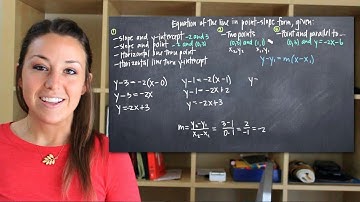 Equation of the line in point-slope form, given:
①
-slope and y-intercept -2 and 3
-slope and point -2 and (0,3)
-Horizontal line thru point
-Horizontal line thru y-intercept
②
-Two points
(0,3) and (1,1)
x₂,y₂ x₁,y₁
③
-Point and parallel to...
(0,3) and y=-2x-6
y-y₁=m(x-x₁)
y-3=-2(x-0)
y-3=-2x
y=-2x+3
y-1=-2(x-1)
y-1=-2x+2
y=-2x+3
y-
m=y₂-y₁/x₂-x₁ = 3-1/0-1 = 2/-1 = -2